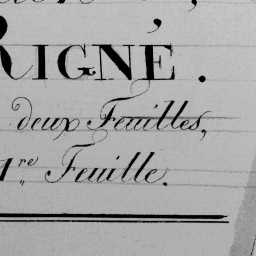 RIGNÉ.
deux Feuilles,
1re Feuille.